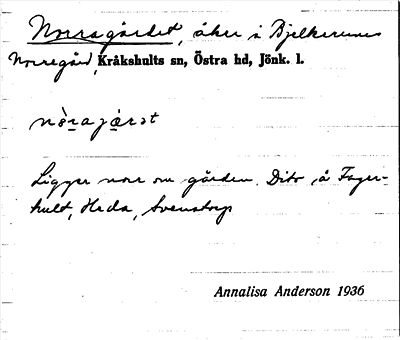 Norragärdet, åker i Bjelkerums
Norregård, Kråkshults sn, Östra hd, Jönk. l.
nòrajæ̀rət
Ligger norr om gården. Dito å Fager-
hult, Heda, Svenstorp
Annalisa Anderson 1936